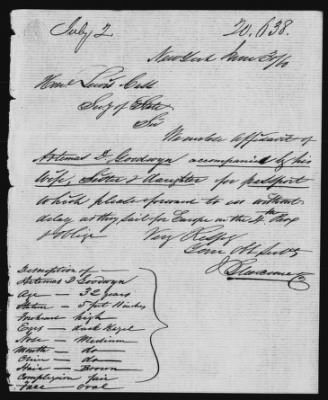 July 2
20,638.
New York June 30/60
Honl Lewis Cass
Secy of State
Sir
We enclose Affidavit of
Artemas D. Goodwyn accompanied by his
Wife, Sister & daughter for passport
which please forward to us without
delay as they sail for Europe on the 4th
& oblige
Very Respy
Your Obt
Description of
Artemas D Goodwyn
Age — 32 years
Stature — 5 feet 11 inches
Forehead high
Eyes — dark Hazel
Nose — Medium
Mouth — do —
Chin — do —
Hair — Brown
Complexion fair
Face — oval